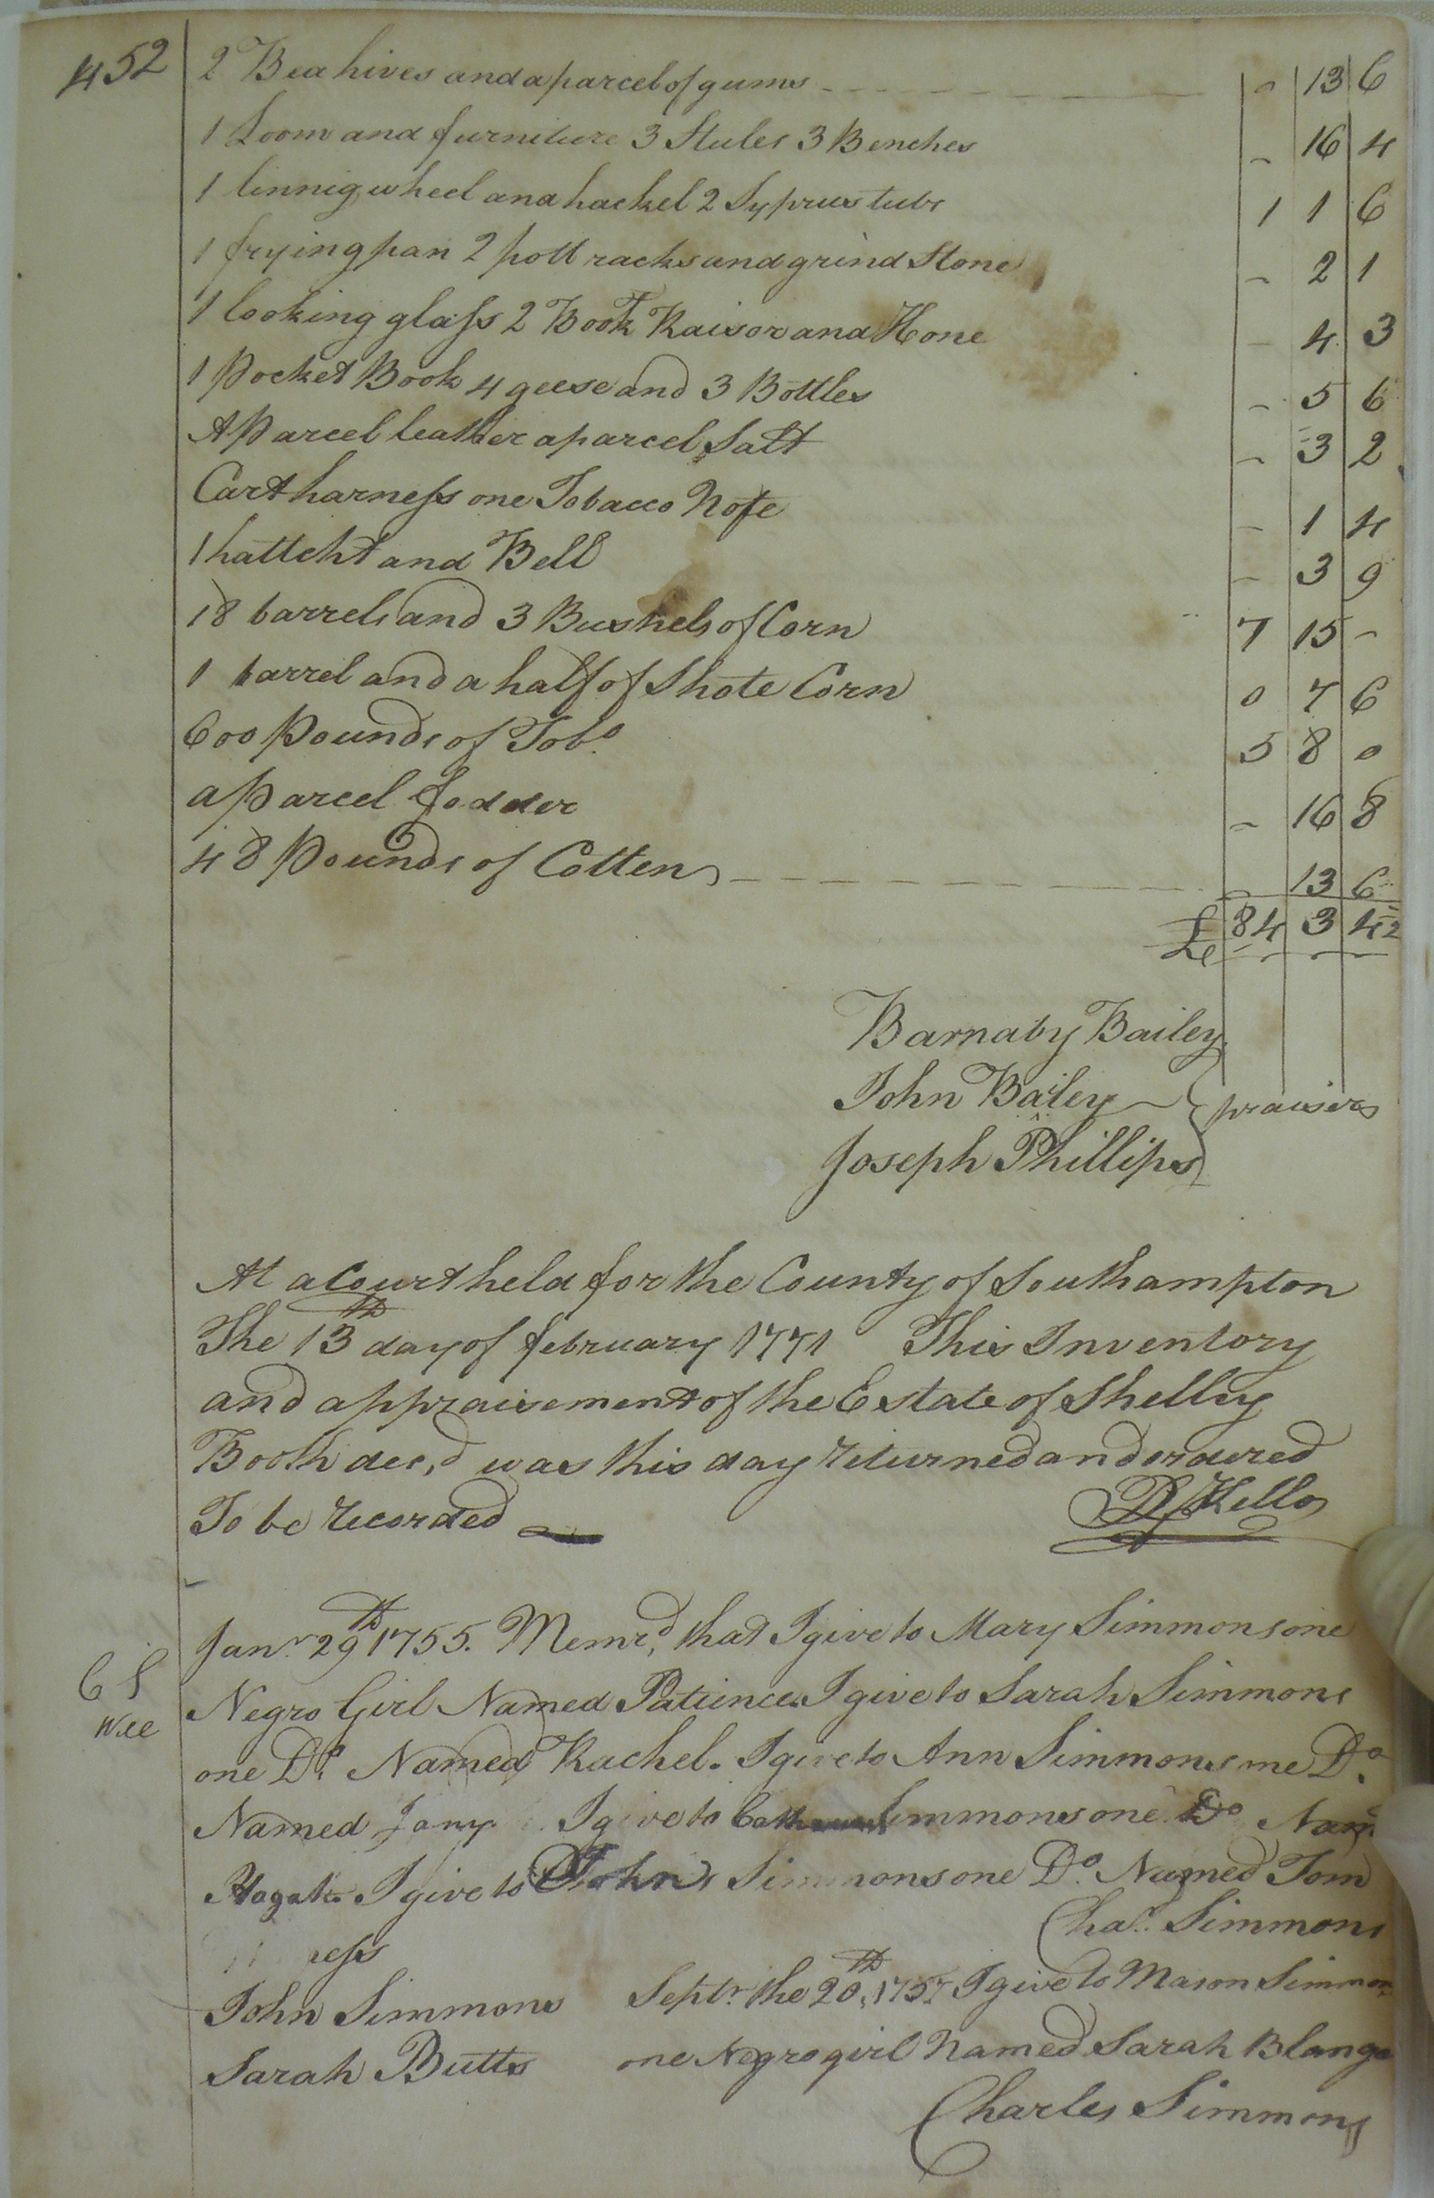 452
2 Bea hives and a parcel of gums - 13 6
1 Loom and furniture 3 Stules 3 Benches - 16 4
1 linnig wheel and hackel 2 Syprus tubs 1 1 6
1 frying pan 2 pott racks and grind Stone - 2 1
1 looking glass 2 Book Raisor and Hone - 4 3
1 Pocket Book 4 geese and 3 Bottles - 5 6
A Parcel leather a parcel Salt - 3 2
Cart harness one Tobacco Note - 1 4
1 hattcht and Bell - 3 9
18 barrels and 3 Bushels of Corn 7 15 -
1 barrel and a half of Shote Corn 0 7 6
600 Pounds of Tobo 5 8 0
a Parcel fodder - 16 8
48 Pounds of Cotten - 13 6
£ 84 3 4 2
Barnaby Bailey
John Bailey praisers
Joseph Phillips
At a Court held for the County of Southampton
The 13th day of february 1771 This Inventory
and appraisement of the Estate of Shelley
Booth dec,d was this day returned and ordered
To be recorded
R Kello
Janr 29th 1755. Memrd, that I give to Mary Simmons one
C S
Wee
Negro Girl Named Patience. I give to Sarah Simmons
one Do. Named Rachel. I give to Ann Simmons one Do.
Named Jany I give to Simmons one Do Nam
I give to John Simmons one Do. Named Tom
Chas. Simmons
ess
John Simmons Septr. the 20th, 1757 I give to Mason Simmon
Sarah Butts one Negro girl Named Sarah Blange
Charles Simmons